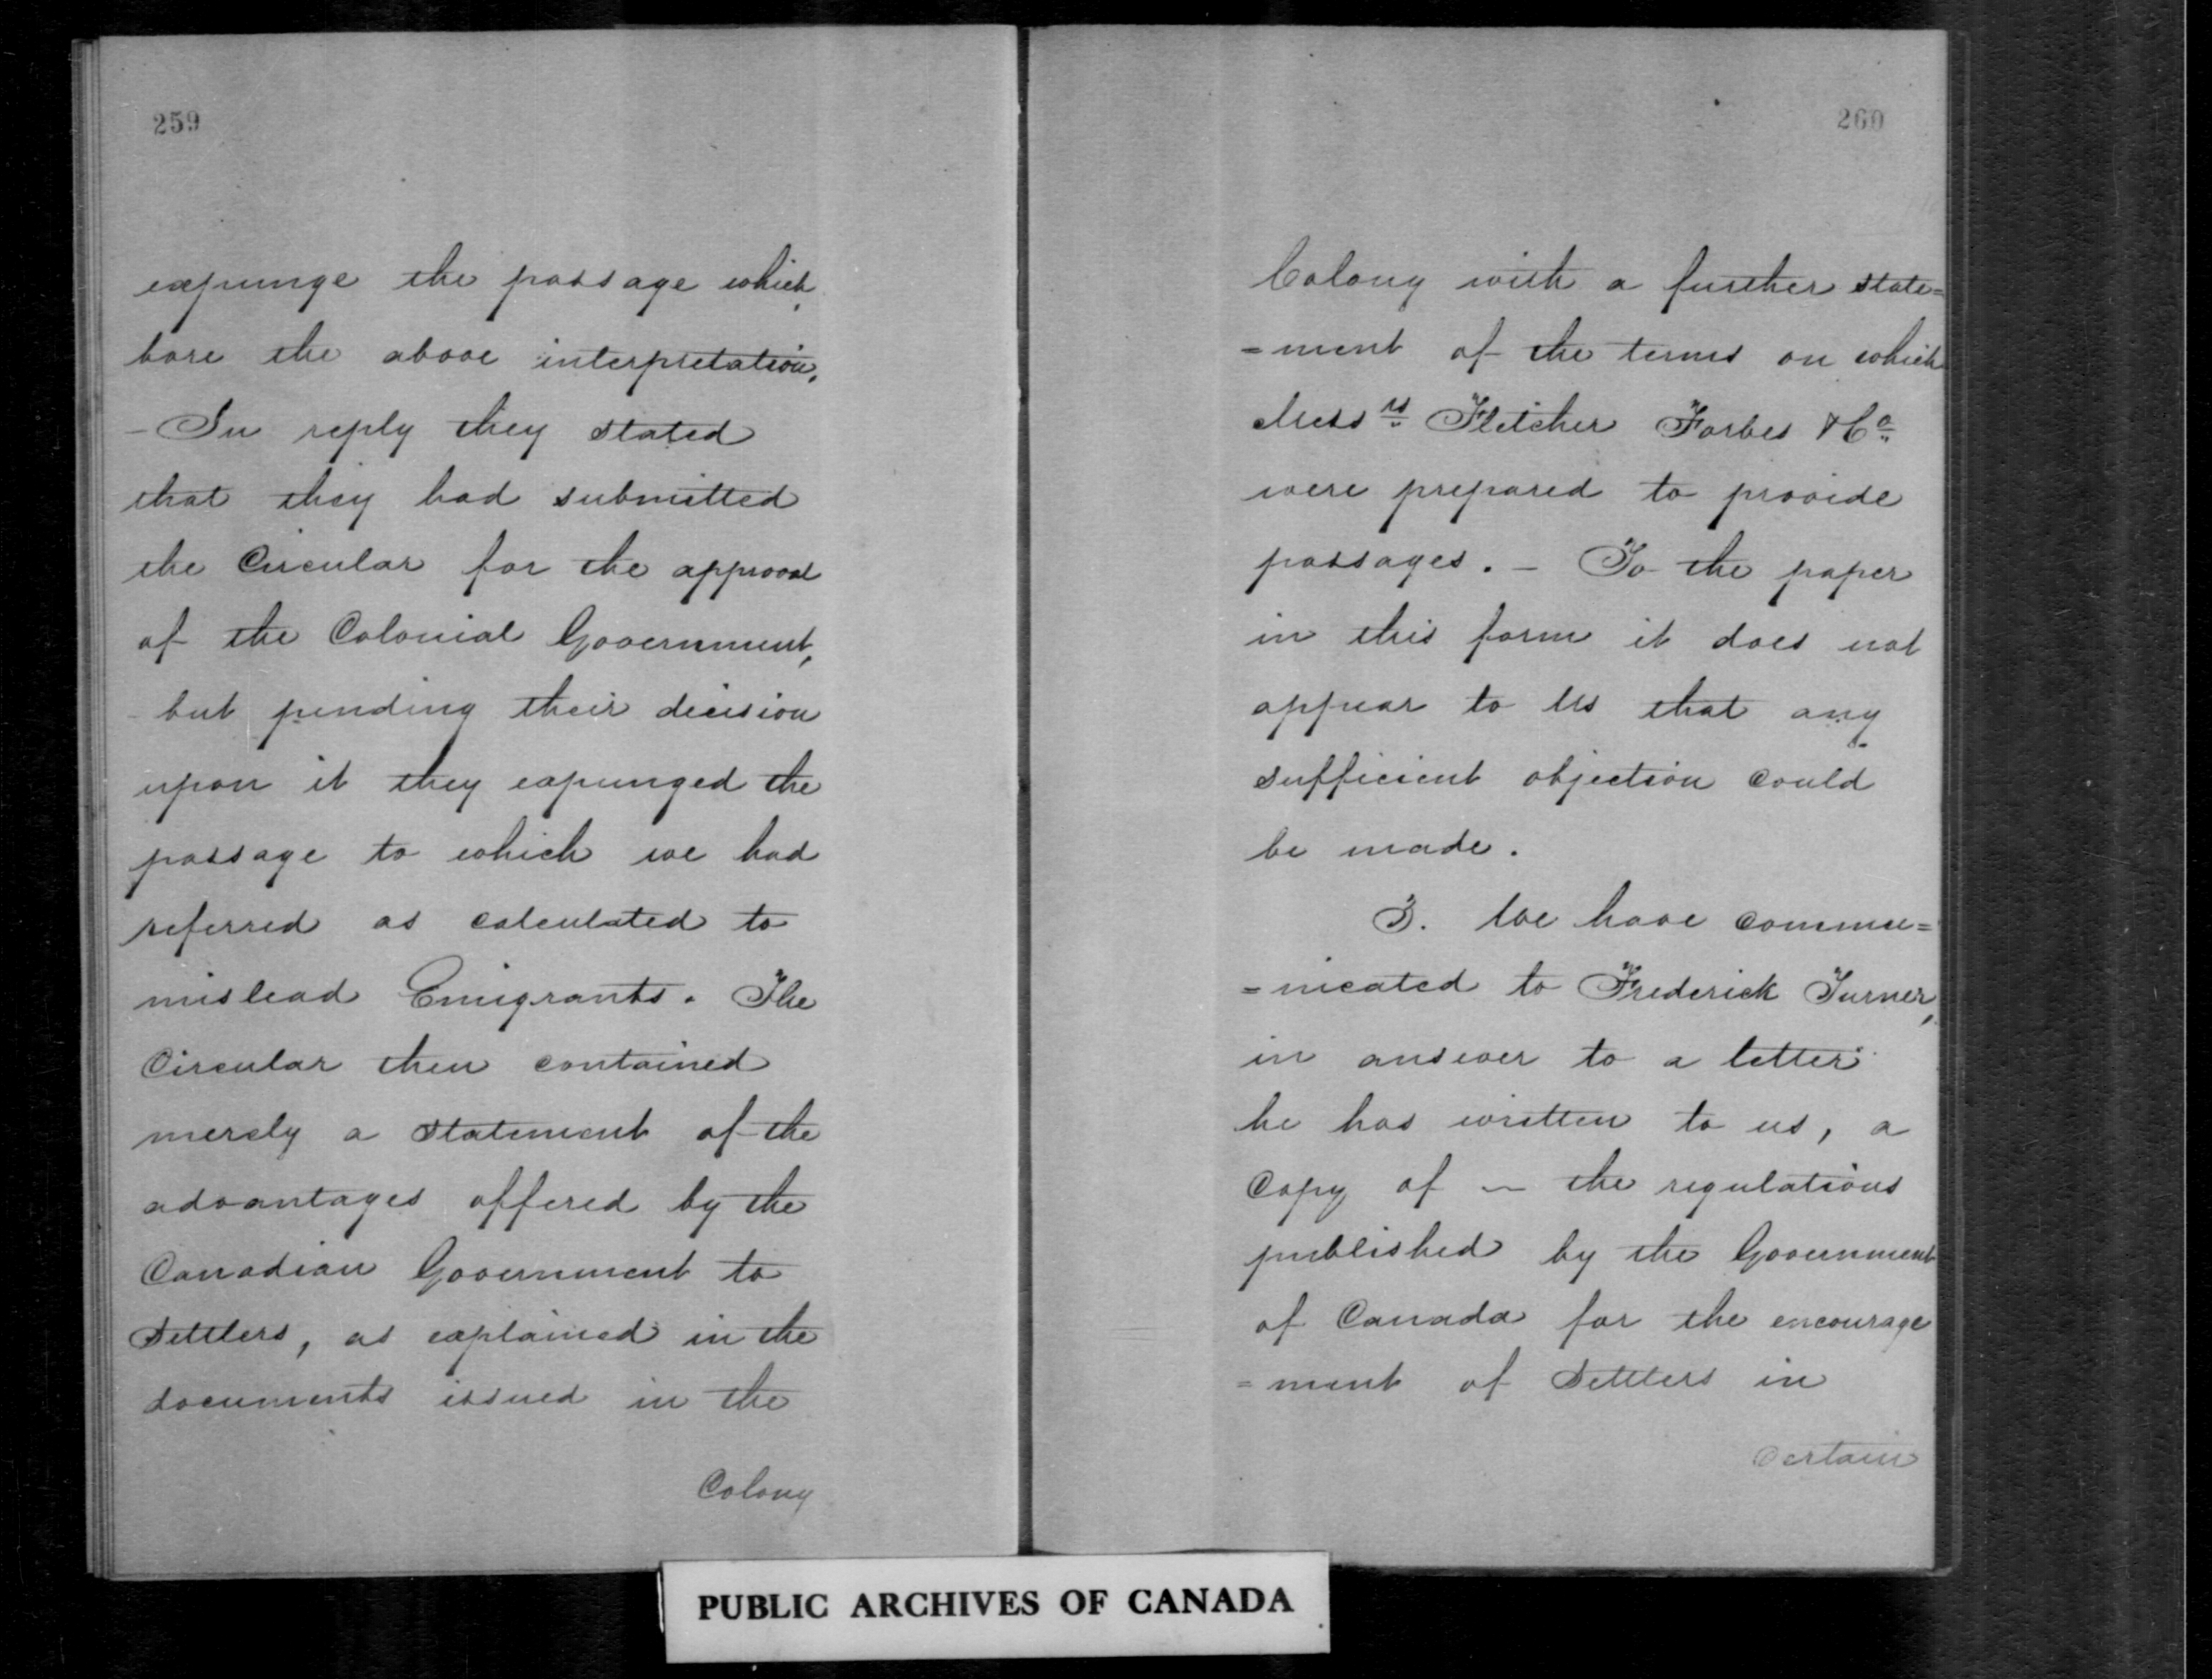 259
expunge the passage which,
bore the above interpretation,
- In reply they stated
that they had submitted
the Circular for the approval
of the Colonial Government,
- but pending their decision
upon it they expunged the
passage to which we had
referred as calculated to
mislead Emigrants. The
Circular then contained
merely a statement of the
advantages offered by the
Canadian Government to
Settlers, as explained in the
documents issued in the
Colony
260
Colony with a further state=
=ment of the terms on which
Messrs Fletcher Forbes & Co
were prepared to provide
passages. - To the paper
in this form it does not
appear to us that any
sufficient objection could
be made.
3. We have commu=
=nicated to Frederick Turner,
in answer to a letter
he has written to us, a
Copy of - the regulations
published by the Government
of Canada for the encourage
=ment of Settlers in
Certain
PUBLIC ARCHIVES OF CANADA